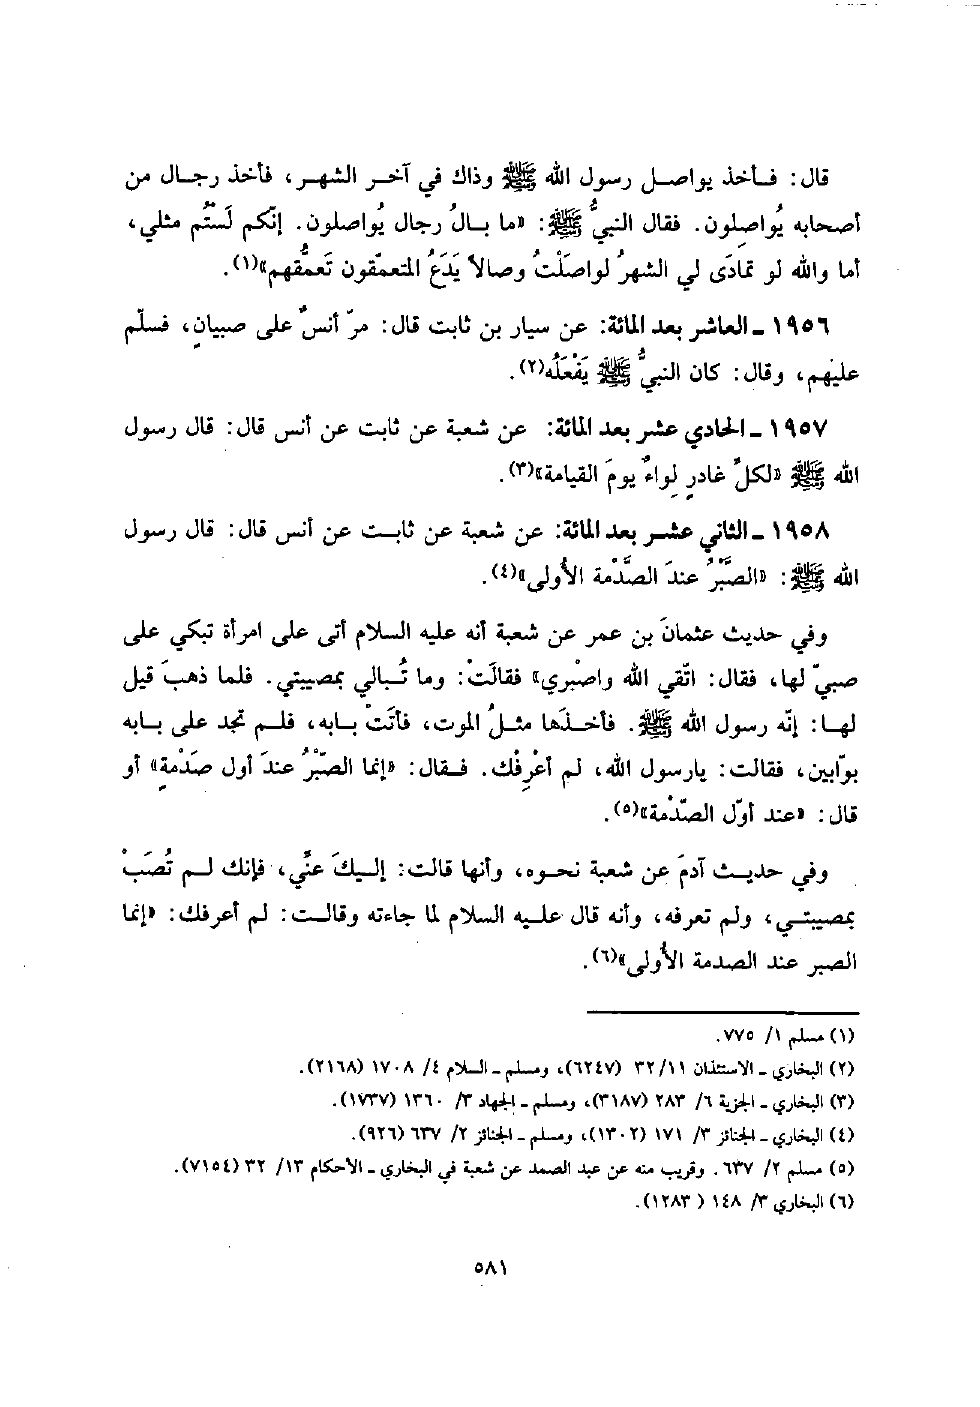 قال: فأخذ يواصل رسول الله ﷺ وذاك في آخر الشهر، فأخذ رجال من
أصحابه يُواصِلون. فقال النبيُّ ﷺ: «ما بالُ رجال يُواصلون. إنّكم لَستُم مثلي،
أما والله لو تمادَى لي الشهرُ لواصَلْتُ وصالاً يَدَعُ المتعمّقون تَعمُّقهم»(١).
١٩٥٦ - العاشر بعد المائة: عن سيار بن ثابت قال: مرّ أنسٌ على صبيانٍ، فسلّم
عليهم، وقال: كان النبيُّ ﷺ يَفْعَلُه(٢).
١٩٥٧ - الحادي عشر بعد المائة: عن شعبة عن ثابت عن أنس قال: قال رسول
الله ﷺ «لكلِّ غادرٍ لِواءٌ يومَ القيامة»(٣).
١٩٥٨ - الثاني عشر بعد المائة: عن شعبة عن ثابت عن أنس قال: قال رسول
الله ﷺ: «الصَّبْرُ عندَ الصَّدْمة الأُولى»(٤).
وفي حديث عثمانَ بن عمر عن شعبة أنه عليه السلام أتى على امرأة تبكي على
صبيّ لها، فقال: اتّقي الله واصْبري» فقالَتْ: وما تُبالي بمصيبتي. فلما ذهبَ قيل
لها: إنّه رسول الله ﷺ. فأخذَها مثلُ الموت، فأتَتْ بابه، فلم تجد على بابه
بوّابين، فقالت: يارسول الله، لم أعْرِفْك. فقال: «إنما الصّبْرُ عندَ أول صَدْمةٍ» أو
قال: «عند أوّل الصّدْمة»(٥).
وفي حديث آدمَ عن شعبة نحوه، وأنها قالت: إليكَ عنّي، فإنك لم تُصَبْ
بمصيبتي، ولم تعرفه، وأنه قال عليه السلام لما جاءته وقالت: لم أعرفك: «إنما
الصبر عند الصدمة الأُولى»(٦).
(١) مسلم ١/ ٧٧٥.
(٢) البخاري - الاستئذان ١١/ ٣٢ (٦٢٤٧)، ومسلم - السلام ٤/ ١٧٠٨ (٢١٦٨).
(٣) البخاري - الجزية ٦/ ٢٨٣ (٣١٨٧)، ومسلم - الجهاد ٣/ ١٣٦٠ (١٧٣٧).
(٤) البخاري - الجنائز ٣/ ١٧١ (١٣٠٢)، ومسلم - الجنائز ٢/ ٦٣٧ (٩٢٦).
(٥) مسلم ٢/ ٦٣٧. وقريب منه عن عبد الصمد عن شعبة في البخاري - الأحكام ١٣/ ٣٢ (٧١٥٤).
(٦) البخاري ٣/ ١٤٨ ( ١٢٨٣).
٥٨١